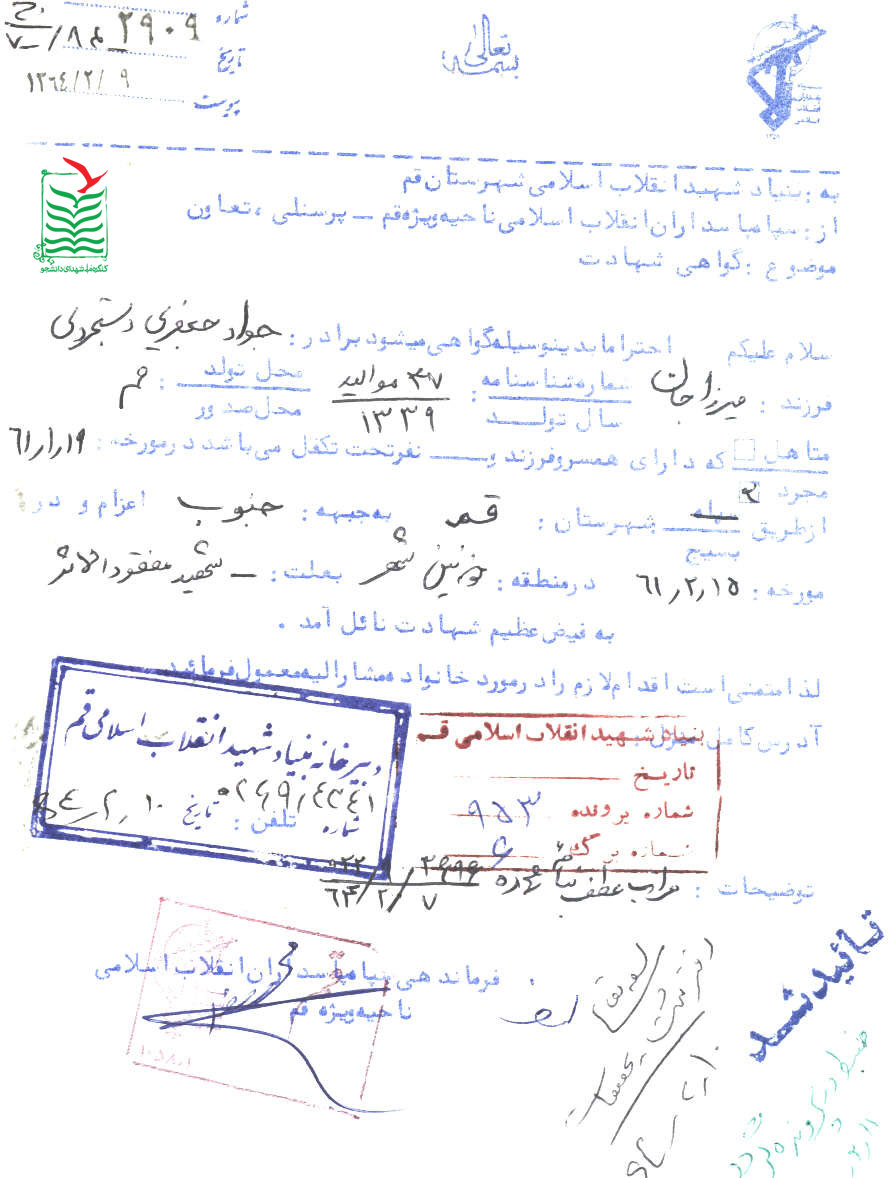 بسمه تعالی
شماره ۲۹۰۹
تاریخ ۱۳۶۴/۲/۹
پیوست
به : بنیاد شهید انقلاب اسلامی شهرستان قم
از : سپاه پاسداران انقلاب اسلامی ناحیه ویژه قم ـ پرسنلی ، تعاون
موضوع : گواهی شهادت
کنگره ملی شهدای دانشجو
سلام علیکم احتراما بدینوسیله گواهی میشود برادر : جواد جعفری دستجردی
فرزند : میرزا جان شماره شناسنامه ۳۷ موالید محل تولد : قم
سال تولد : ۱۳۳۹ محل صدور
متاهل که دارای همسر و فرزند و نفر تحت تکفل می باشد در مورخه : ۶۱/۱/۱۹
مجرد
از طریق سپاه شهرستان : قم به جبهه : جنوب اعزام و در
بسیج
مورخه : ۶۱/۲/۱۵ در منطقه : خونین شهر بعلت : ـ شهید مفقودالاثر
به فیض عظیم شهادت نائل آمد .
لذا متمنی است اقدام لازم را در مورد خانواده مشارالیه معمول فرمائید
آدرس کامل منزل
بنیاد شهید انقلاب اسلامی قم
تاریخ
شماره پرونده ۹۵۳
شماره برگ ۶
دبیرخانه بنیاد شهید انقلاب اسلامی قم
شماره تاریخ ۶۴/۲/۱۰
تلفن :
توضیحات :
فرماندهی سپاه پاسداران انقلاب اسلامی
ناحیه ویژه قم
تائید شد